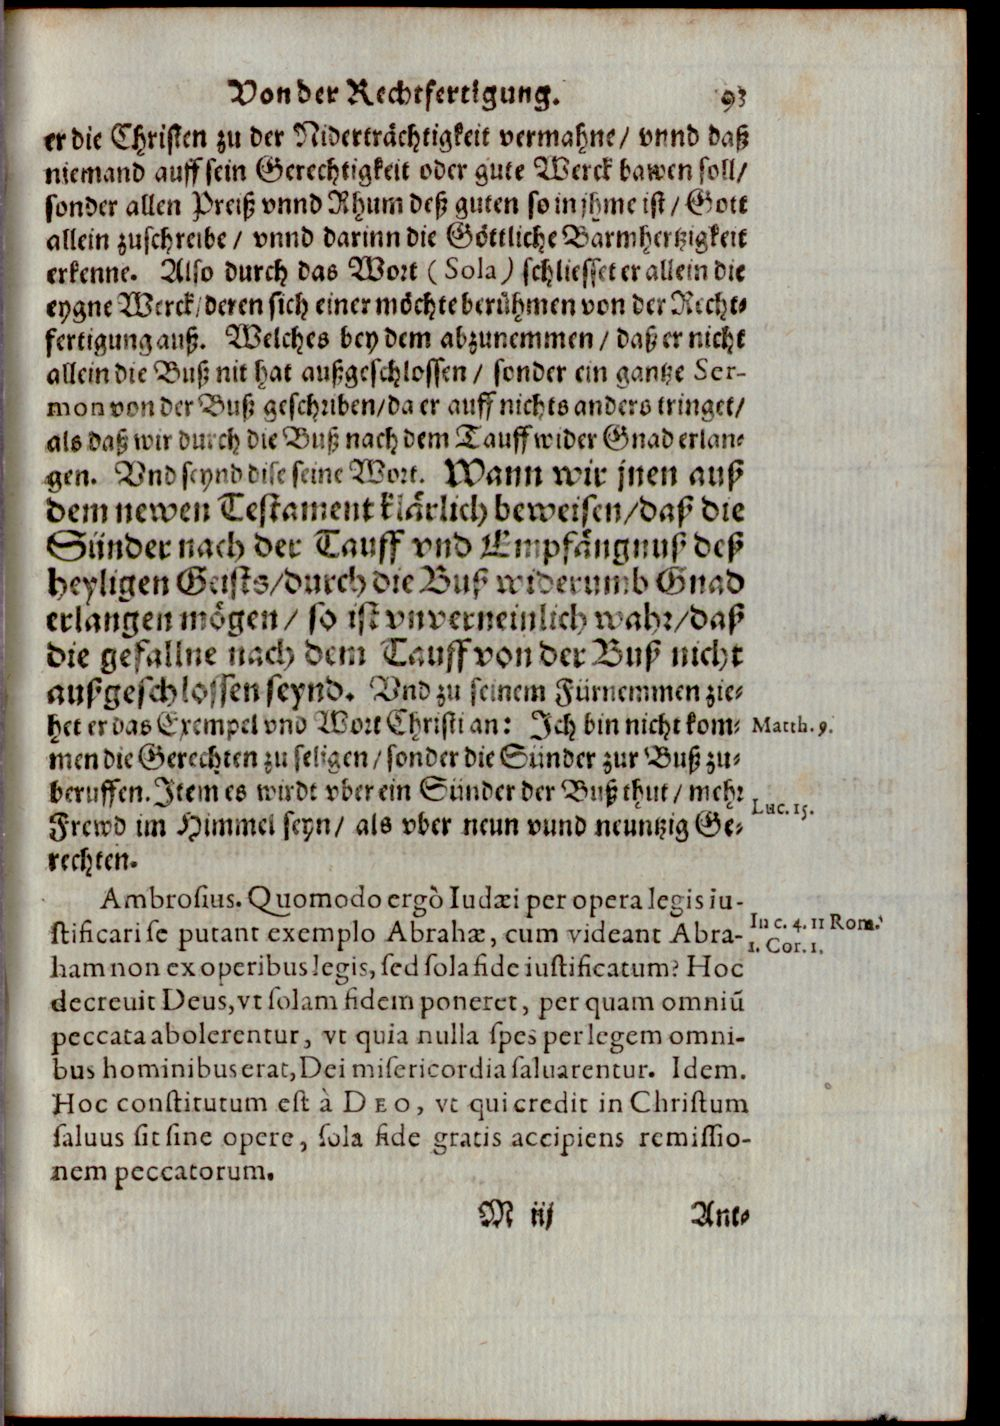 Von der Rechtfertigung. 93
er die Christen zu der Niderträchtigkeit vermahne/ vnnd daß
niemand auff sein Gerechtigkeit oder gute Werck bawen soll/
sonder allen Preiß vnnd Rhum deß guten so in jhme ist/ Gott
allein zuschreibe/ vnnd darinn die Göttliche Barmhertzigkeit
erkenne. Also durch das Wort (Sola) schliesset er allein die
eygne Werck/deren sich einer möchte berühmen von der Recht-
fertigung auß. Welches bey dem abzunemmen/ daß er nicht
allein die Buß nit hat außgeschlossen/ sonder ein gantze Ser-
mon von der Buß geschriben/da er auff nichts anders tringet/
als daß wir durch die Buß nach dem Tauff wider Gnad erlan-
gen. Vnd seynd dise seine Wort. Wann wir jnen auß
dem newen Testament klärlich beweisen/daß die
Sünder nach der Tauff vnd Empfängnuß deß
heyligen Geists/durch die Buß widerumb Gnad
erlangen mögen/ so ist vnverneinlich wahr/daß
die gefallne nach dem Tauff von der Buß nicht
außgeschlossen seynd. Vnd zu seinem Fürnemmen zie-
het er das Exempel vnd Wort Christi an: Jch bin nicht kom- Matth. 9.
men die Gerechten zu seligen/sonder die Sünder zur Buß zu-
beruffen. Jtem es wirdt vber ein Sünder der Buß thut/ mehr
Luc. 15.
Frewd im Himmel seyn/ als vber neun vnnd neuntzig Ge-
rechten.
Ambrosius. Quomodo ergò Iudæi per opera legis iu-
stificari se putant exemplo Abrahæ, cum videant Abra- In c. 4. 11 Rom.
1. Cor. 1.
ham non ex operibus legis, sed sola fide iustificatum? Hoc
decreuit Deus, vt solam fidem poneret, per quam omniū
peccata abolerentur, vt quia nulla spes per legem omni-
bus hominibus erat, Dei misericordia saluarentur. Idem.
Hoc constitutum est à DEO, vt qui credit in Christum
saluus sit sine opere, sola fide gratis accipiens remissio-
nem peccatorum.
M iij Ant-